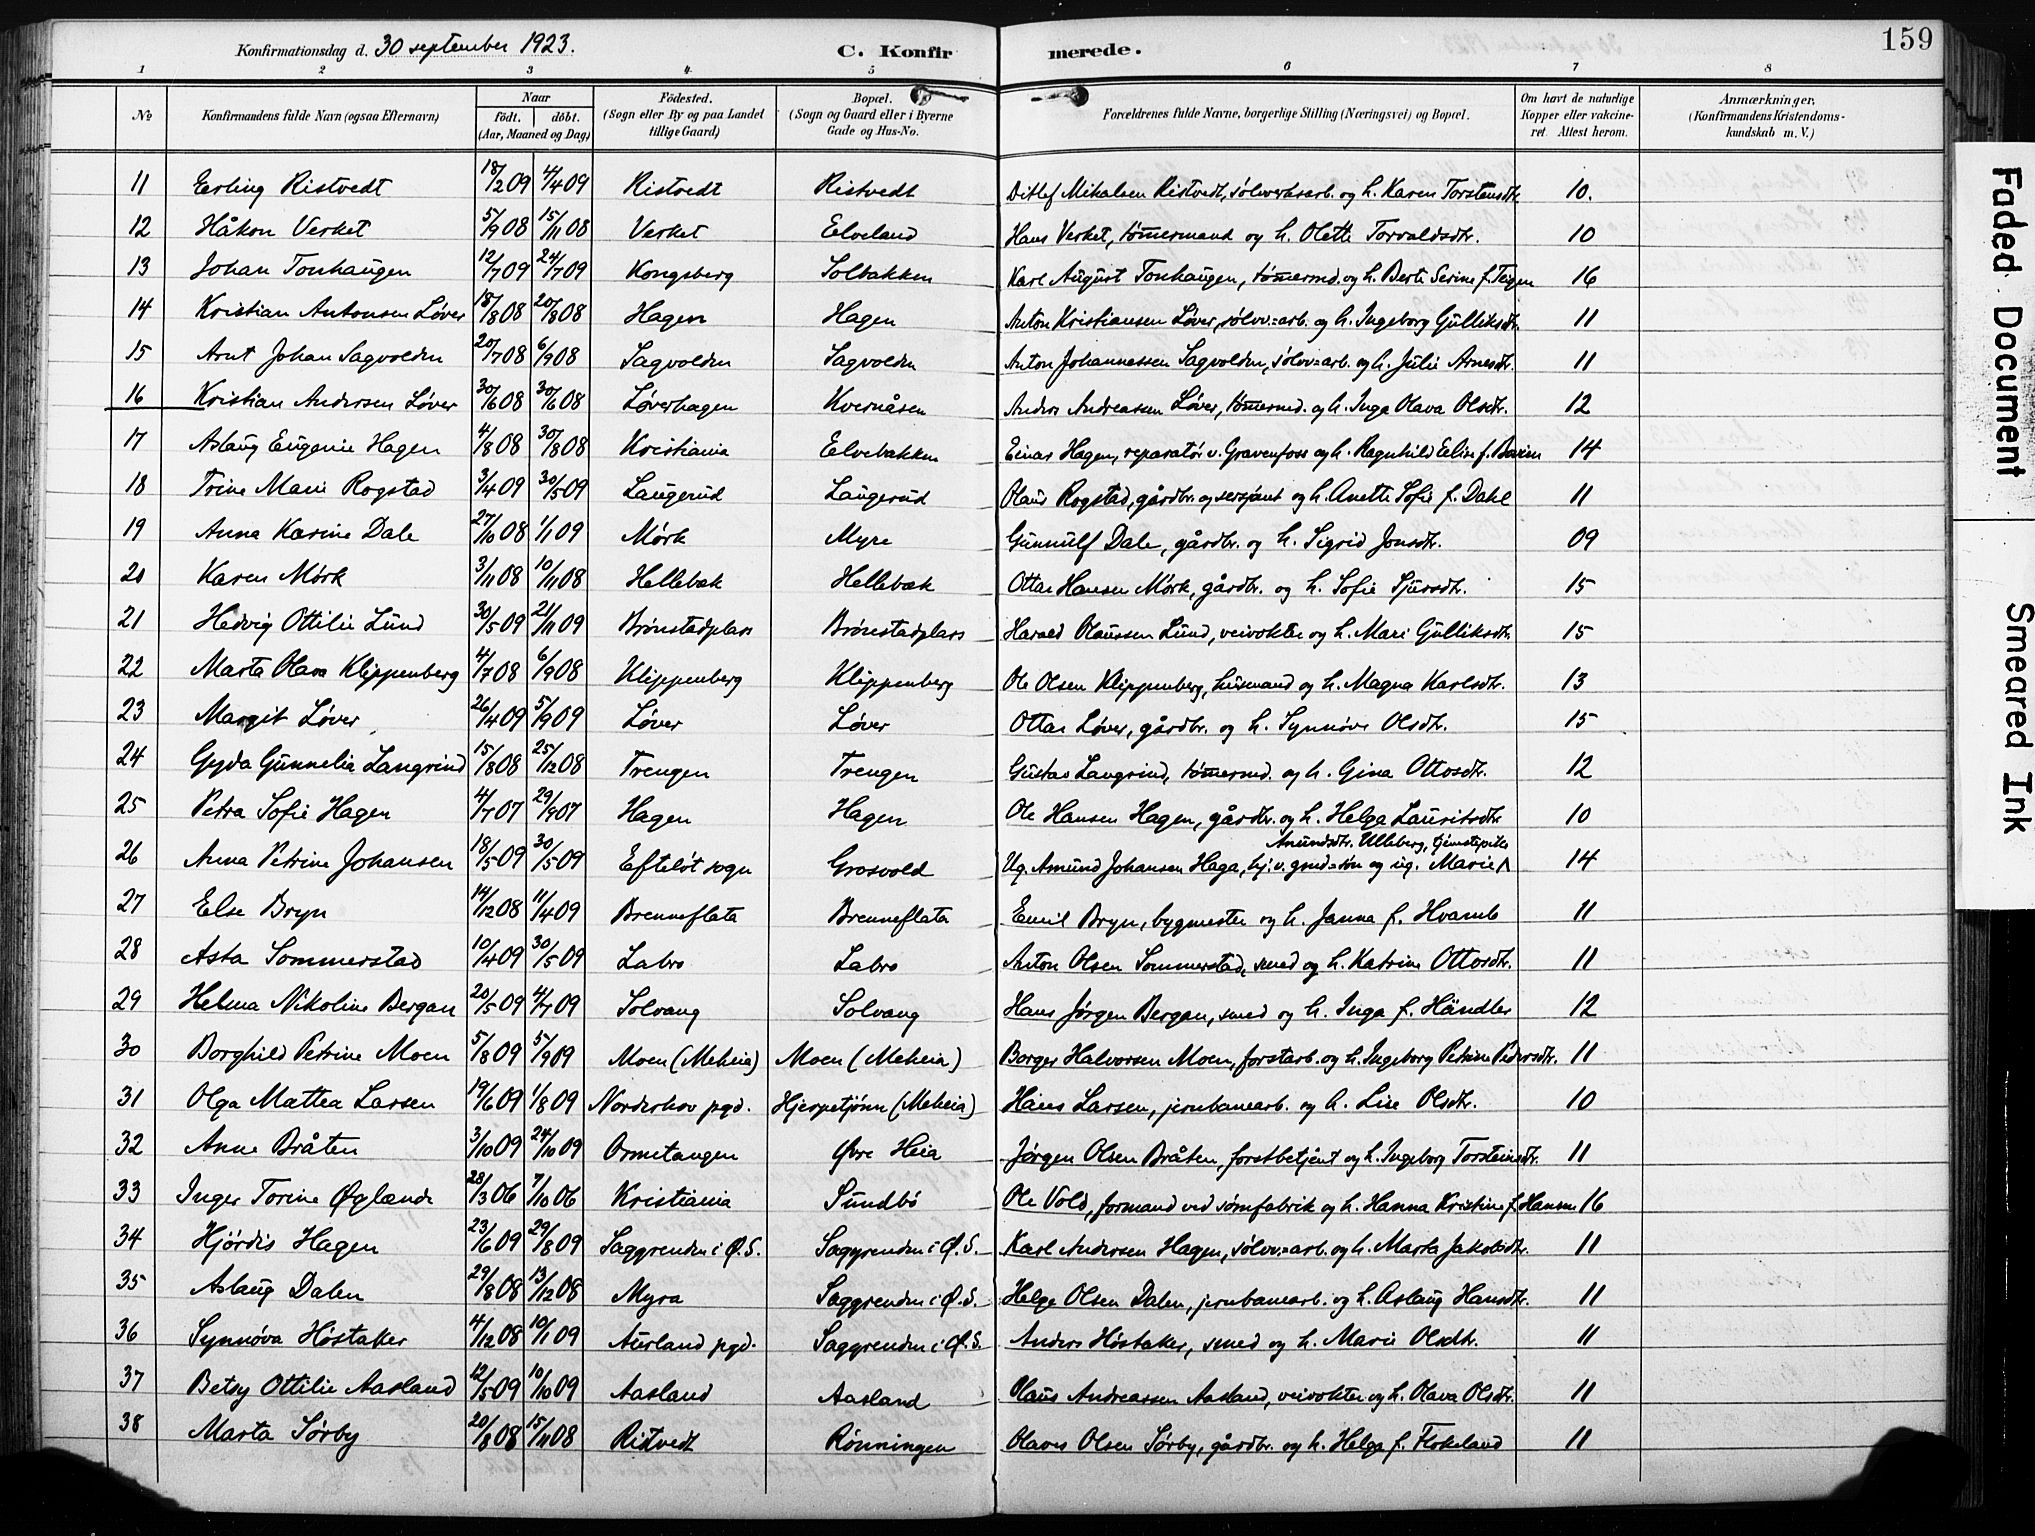 159
Konfirmationsdag d. 30 september 1923. C. Konfirmerede.
1 2 3 4 5 6 7 8
No Konfirmandens fulde Navn (ogsaa Efternavn) Naar födt. döbt. (Aar, Maaned og Dag) Födested. (Sogn eller By og paa Landet tillige Gaard) Bopæl. (Sogn og Gaard eller i Byerne Gade og Hus-No. Forældrenes fulde Navne, borgerlige Stilling (Næringsvei) og Bopæl. Om havt de naturlige Kopper eller vakcineret. Attest herom. Anmærkninger. (Konfirmandens Kristendomskundskab m. V.)
11 Erling Ristvedt 18/2 09 4/4 09 Ristvedt Ristvedt Ditlef Mikalsen Ristvedt, sølvverksarb. og h. Karen Torstensdtr. 10.
12 Håkon Verket 5/9 08 15/11 08 Verket Elveland Hans Verket, tømermand og h. Olette Torvaldsdtr. 10
13 Johan Tonhaugen 12/7 09 24/7 09 Kongsberg Solbakken Karl August Tonhaugen, tømermd. og h. Berte Serine f. Teigen 16
14 Kristian Antonsen Løver 18/8 08 20/8 08 Hagen Hagen Anton Kristiansen Løver, sølvv.=arb. og h. Ingeborg Gulliksdtr. 11
15 Arnt Johan Sagvolden 20/7 08 6/9 08 Sagvolden Sagvolden Anton Johannessen Sagvolden, sølvv=arb. og h. Julie Arnesdtr. 11
16 Kristian Andersen Løver 30/6 08 30/6 08 Løverhagen Kvernåsen Anders Andreassen Løver, tømermd. og h. Inga Olava Olsdtr. 12
17 Aslaug Eugenie Hagen 4/8 08 30/8 08 Kristiania Elvebakken Einar Hagen, reparatør v. Gravenfoss og h. Ragnhild Elise f. 14
18 Trine Marie Rogstad 3/4 09 30/5 09 Laugerud Laugerud Olaus Rogstad, gårdbr. og sersjant og h. Anette Sofie f. Dahl 11
19 Anna Karine Dale 27/10 08 1/1 09 Mørk Myre Gunnulf Dale, gårdbr. og h. Sigrid Jonsdtr. 09
20 Karen Mørk 3/11 08 10/11 08 Hellebæk Hellebæk Ottar Hansen Mørk, gårdbr. og h. Sofie Sjursdtr. 15
21 Hedvig Ottilie Lund 30/5 09 21/11 09 Brønstadplass Brønstadplass Harald Olaussen Lund, veivokter og h. Mari Gulliksdtr. 15
22 Marta Olava Klippenberg 4/7 08 6/9 08 Klippenberg Klippenberg Ole Olsen Klippenberg, husmand og h. Magna Karlsdtr. 13
23 Margit Løver 26/4 09 5/9 09 Løver Løver Ottar Løver, gårdbr. og h. Synnøve Olsdtr. 15
24 Gyda Gunnelia Langrind 15/8 08 25/12 08 Trengen Trengen Gustav Langrind, tømermd. og h. Gina Ottosdtr. 12
25 Petra Sofie Hagen 4/7 07 29/9 07 Hagen Hagen Ole Hansen Hagen, gårdbr. og h. Helga Lauritsdtr. 10
Amundsdtr. Ulleberg, tjenestepike
26 Anna Petrine Johansen 18/5 09 30/5 09 Efteløt sogn Grosvold Ug. Amund Johansen Haga, hj.v. grd=søn og ug. Marie ʌ 14
27 Else Bryn 14/12 08 11/4 09 Brenneflata Brenneflata Emil Bryn, bygmester og h. Janna f. Hvamb 11
28 Asta Sommerstad 10/4 09 30/5 09 Labro Labro Anton Olsen Sommerstad, smed og h. Katrine Ottosdtr. 11
29 Helma Nikoline Bergan 20/5 09 4/7 09 Solvang Solvang Hans Jørgen Bergan, smed og h. Inga f. Händler 12
30 Borghild Petrine Moen 5/8 09 5/9 09 Moen (Meheia) Moen (Meheia) Borger Halvorsen Moen, forstarb. og h. Ingeborg Petrine Pedersdtr. 11
31 Olga Mattea Larsen 19/6 09 1/8 09 Norderhov pgd. Hjerpetjønn (Meheia) Hans Larsen, jernbanearb. og h. Lise Olsdtr. 10
32 Anne Bråten 3/10 09 24/10 09 Ormetangen Øvre Heia Jørgen Olsen Bråten, forstbetjent og h. Ingeborg Torsteinsdtr. 11
33 Inger Torine Øglænde 28/3 06 7/10 06 Kristiania Sundbø Ole Vold, formand ved sømfabrik og h. Hanna Kristine f. Hansen 16
34 Hjördis Hagen 23/6 09 29/8 09 Saggrenden i Ø.S. Saggrenden i Ø.S. Karl Andersen Hagen, sølvv.=arb. og h. Marta Jakobsdtr. 11
35 Aslaug Dalen 29/8 08 13/12 08 Myra Saggrenden i Ø.S. Helge Olsen Dalen, jernbanearb. og h. Aslaug Hansdtr. 11
36 Synnøva Høstaker 4/12 08 10/1 09 Aurland pgd. Saggrenden i Ø.S. Anders Høstaker, smed og h. Marie Olsdtr. 11
37 Betsy Ottilie Aasland 12/5 09 10/10 09 Aasland Aasland Olaus Andreassen Aasland, veivokter og h. Olava Olsdtr. 11
38 Marta Sørby 20/8 08 15/11 08 Ristvedt Rønningen Olaves Olsen Sørby, gårdbr. og h. Helga f. Flokeland 11
Faded Document
Smeared Ink